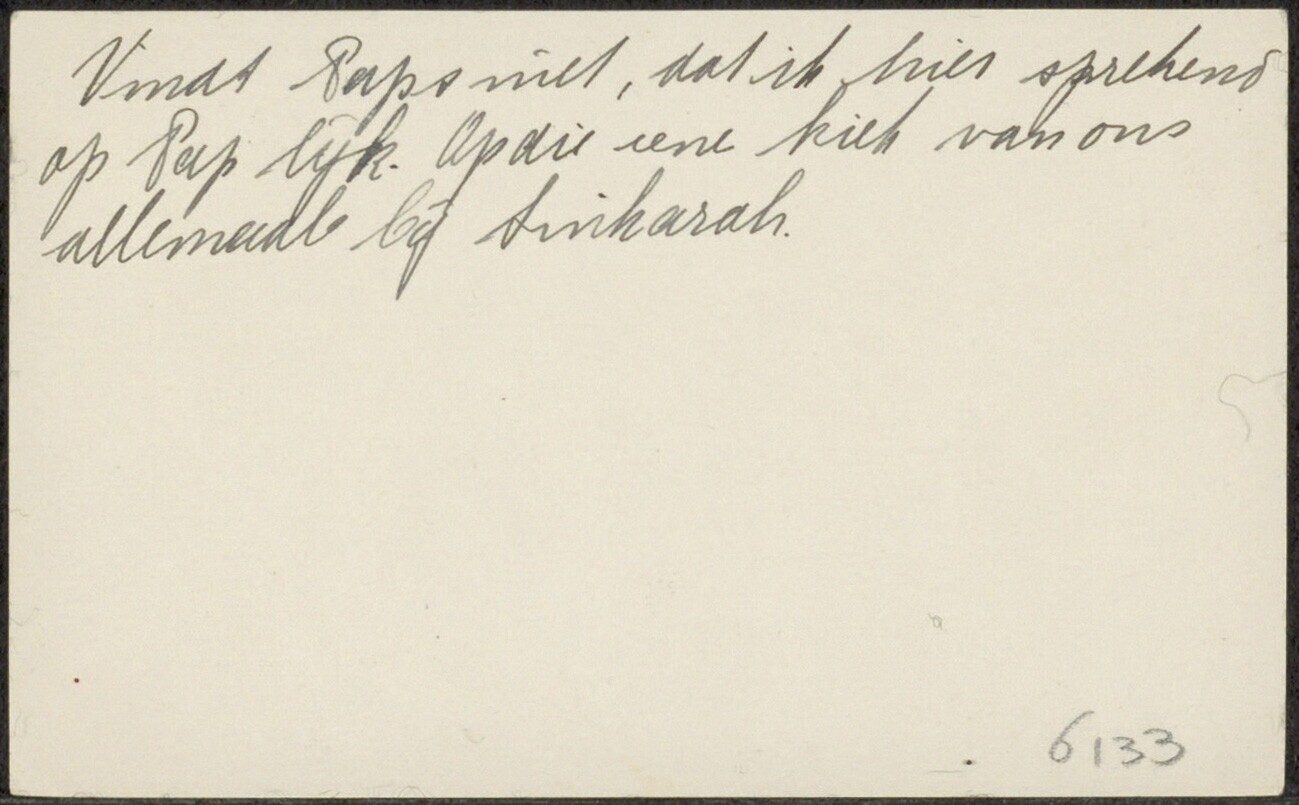 Vindt Paps niet, dat ik hier sprekend
op Pap lijk. Op die eene kiek van ons
allemaal bij Sinkarah.
6133